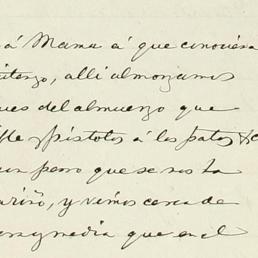 á Mama á que conociera
allí almorzamos
ues del almuerzo que
y pistolos á los patos &c
un perro que se nos ha
ariño, y vimos cerca de
ora y media que en el